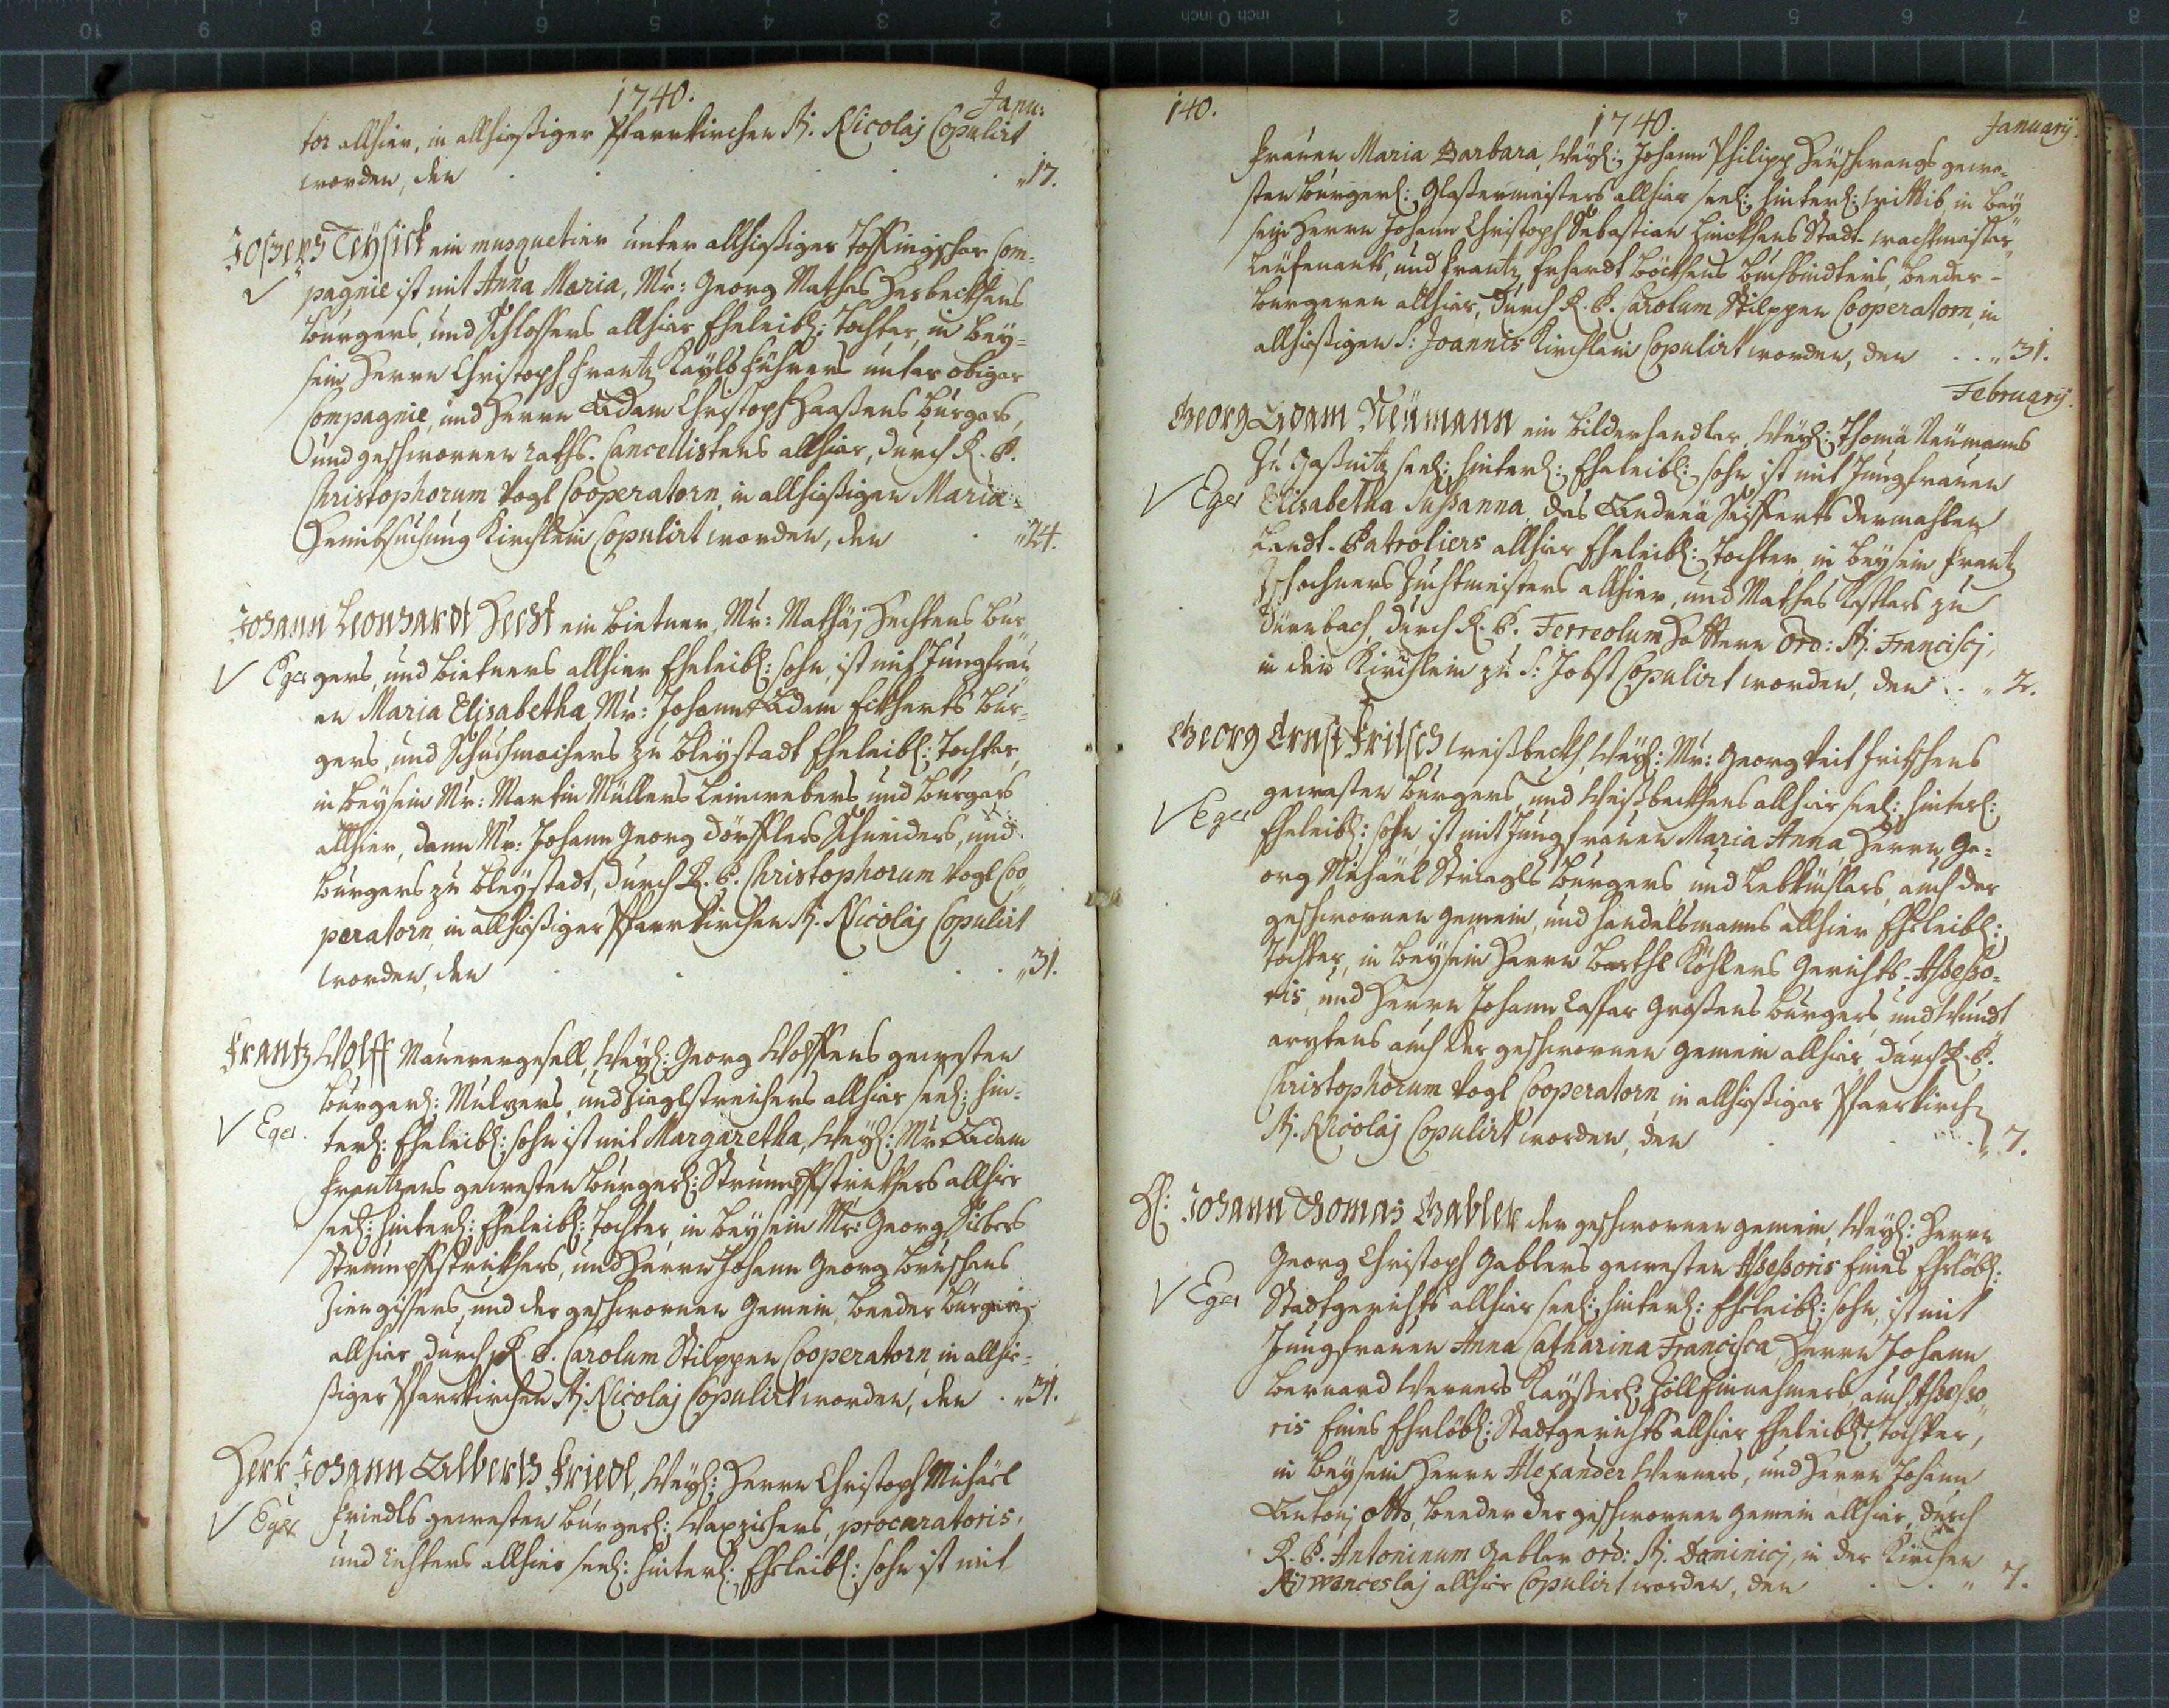 1740.
Janu:
tor allhier, in allhießiger Pfarrkirchen St. Nicolaj Copulirt
worden, den . . . . . „17.
Joseph Teysick ein musquetier unter allhießiger Com-
pagnie ist mit Anna Maria, Mr: Georg Mathes Herbeckhens
Burgers, und Schlossers allhier Eheleibl: Tochter, in Bey-
sein Herrn Christoph Frantz führers unter obiger
Compagnie, und Herrn Adam Christoph Haaßens Burgers,
und geschwornen raths-Cancellistens allhier, durch R. P.
Christophorum Vogl Cooperatorn, in allhießigen Mariä-
Heimbsuchung Kirchlein Copulirt worden, den . „24.
Johann Leonhardt Hecht ein Bietner, Mr: Mathäj Hechtens Bur-
✓ Eger gers, und Bietners allhier Eheleibl: sohn, ist mit Jungfrau-
en Maria Elisabetha Mr: Johann Adam Eckherts Bur-
gers, und Schuchmachers zu Bleystadt Eheleibl: Tochter,
in Beysein Mr: Martin Müllers Leinwebers und Burgers
allhier, dann Mr: Johann Georg Dörfflers Schneiders, und
Burgers zu Bleystadt, durch R. P. Christophorum Vogl Coo-
peratorn, in allhießiger Pfarrkirchen St. Nicolaj Copulirt
worden, den . . . . . „31.
Frantz Wolff Maurergesell, Weyl: Georg Wolffens gewesten
Burgerl: Mulzers, und Zieglstreichers allhier seel: hin-
✓ Eger. terl: Eheleibl: sohn ist mit Margaretha, Weyl: Mr. Adam
Frantzens gewesten Burgerl: Strumpffstrickhers allhier
seel: hinterl: Eheleibl: Tochter, in Beysein Mr: Georg
Strumpffstrickhers, und Herrn Johann Georg
Ziengissers, und der geschwornen Gemein, Beeder Burgern
allhier, durch R. P. Carolum Stilppen Cooperatorn, in allhie-
ßiger Pfarrkirchen St. Nicolaj Copulirt worden, den . „31.
Herr Johann Alberth Friedl, Weyl: Herrn Christoph Michäel
✓ Eger Friedls gewesten Burgerl: Waxzichers, procuratoris,
und allhier seel: hinterl: Eheleibl: sohn ist mit
140.
1740.
Januarÿ.
Frauen Maria Barbara, Weyl: Johann Philipp gewe-
sten Burgerl: Glasermeisters allhier seel: hinterl: wittib, in Bey
sein Herrn Johann Christoph Sebastian Stadt-wachtmeister
Leütenants, und Frantz Erhardt Böckhens Buchbindters, beeder-
Burgeren allhier, durch R. P. Carolum Stilppen Cooperatorn, in
allhießigen S: Joannis Kirchlein Copulirt worden, den . . „31.
Februarÿ.
Georg Adam Neümann ein Bilderhandler, Weyl: Thomä Neümanns
zu seel: hinterl: Eheleibl: sohn ist mit Jungfrauen
✓ Eger Elisabetha Sußanna, des Andreä Seifferts dermahlen
Landt-Patroliers allhier Eheleibl: Tochter, in Beysein Frantz
Zuchtmeisters allhier, und Mathes zu
Dürnbach, durch R. P. Ferreolum Ord: St. Francisci,
in den Kirchlein zu S: Jobst Copulirt worden, den . . „ 2.
Georg Ernst Fritsch weißbeckh, Weyl: Mr: Georg Veit Fritschens
gewesten Burgers, und Weißbeckhens allhier seel: hinterl:
✓ Eger Eheleibl: sohn, ist mit Jungfrauen Maria Anna, Herrn Ge-
org Michäel Burgers, und Lebküchlers, auch der
geschwornen gemein, und handelsmanns allhier Eheleibl:
Tochter, in Beysein Herrn Barthl Köhlers Gerichts-Asseßo-
ris, und Herrn Johann Caspar Großens Burgers, und Wundt
arztens auch der geschwornen gemein allhier, durch R. P.
Christophorum Vogl Cooperatorn, in allhießiger Pfarrkirch
St. Nicolaj Copulirt worden, den . . . „ 7.
H: Johann Thomas Gabler der geschwornen gemein, Weyl: Herrn
Georg Christoph Gablers gewesten Aßeßoris Eines Ehrlöbl:
✓ Eger Stadtgerichts allhier seel: hinterl: Eheleibl: sohn, ist mit
Jungfrauen Anna Catharina Francisca, Herrn Johann
Bernard Werners Kayßerl: Zolleinnehmers, auch Aßeßo-
ris Eines Ehrlöbl: Stadtgerichts allhier Eheleibl: Tochter,
in Beysein Herrn Alexander Werners, und Herrn Johann
Antonj Otto, beeder der geschwornen gemein allhier, durch
R. P. Antoninum Gabler Ord: St. Dominicj, in der Kirchen
St. Wenceslaj allhier Copulirt worden, den . . „ 7.